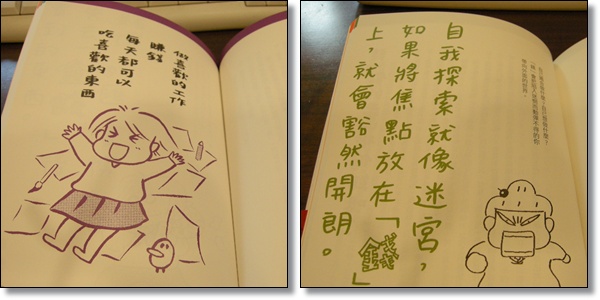 做喜歡的工作
賺錢
每天都可以
吃喜歡的東西
自我探索就像迷宮，
如果將焦點放在「錢」
上，就會豁然開朗。